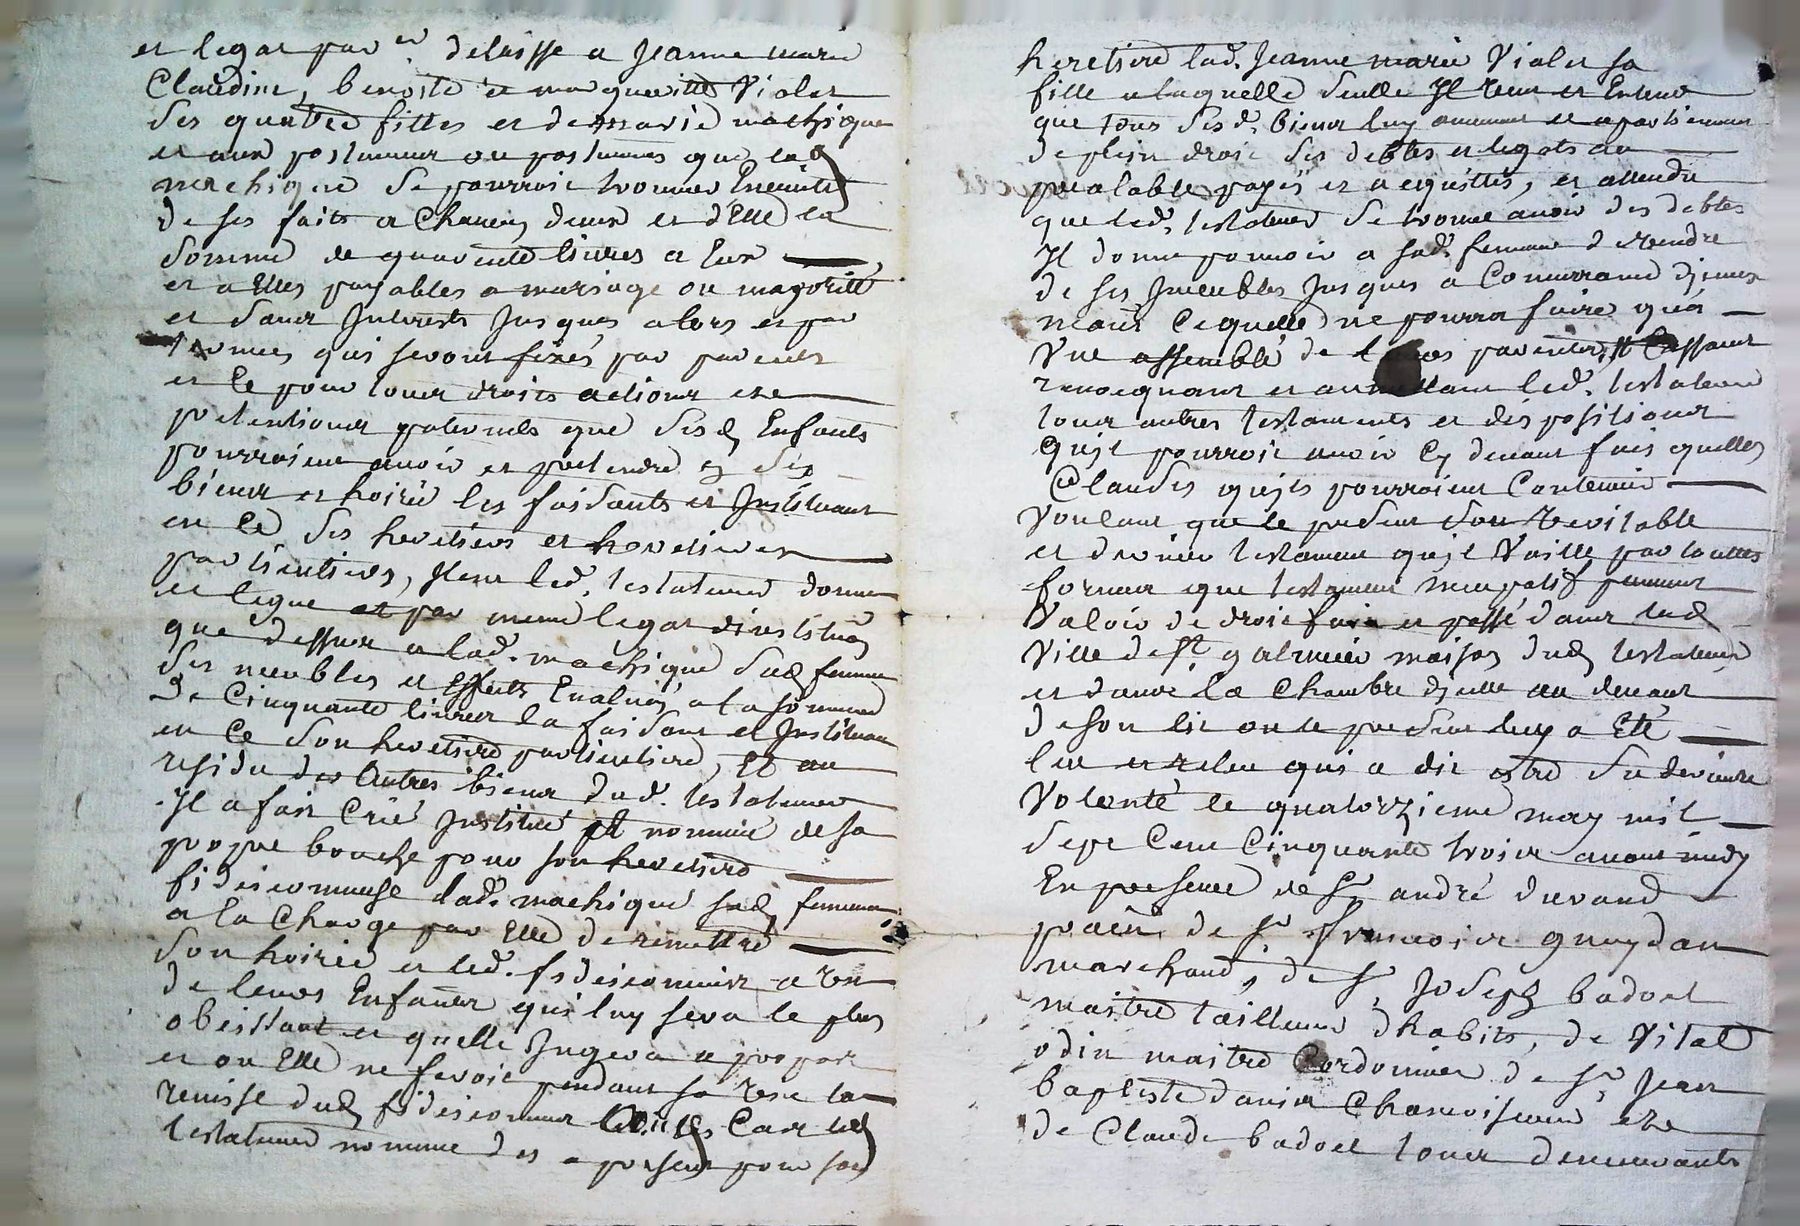 et legat par en delaisse a Jeanne marie
Claudine, benoite et margueritte Violet
ses quatre filles et de marie machique
et aux postumeur ou postumes que lad
machique se pourroit trouver Enceinte
de ses faits a Chacun deux et dElle la
somme de quarente livres a Eux
et a Elles payables a mariage ou majorité
et sans Interests Jusques alors et par
termes qui seront fixés par parents
et ce pour tous droits actions et
pretentions paternels que sesd Enfants
pourroient avoir et pretendre en ses
biens et hoirie les faisants et Instituant
en ce ses heretiers et heretieres
particuliers, Item led. testateur donne
et legue et par meme legat dinstitution
que dessus a lad. machique sad femme
des meubles et Effects Evalués a la somme
de Cinquante livres la faisant et Instituant
en ce son heretiere particuliere, Et au
residu des Autres biens dud. testateur
Il a fait Crée Institué et nommé de sa
propre bouche pour son heretiere
fideicommisse lad. machique sad femme
a la Charge par Elle de remettre
son hoirie et led. fideicommis a un
de leurs Enfants qui luy sera le plus
obeissant et quelle Jugera a propos
et ou Elle ne feroit pendant sa vie la
remise dud fideicommis Car led
testateur nomme des a present pour son
heretiere lad. Jeanne marie Violet sa
fille a laquelle seulle Il veut et Entend
que tous sesd. biens luy avienne et apartiennent
de plein droit ses debtes et legats au
prealable payés et acquittés, et attendu
que led. testateur se trouve avoir des debtes
Il donne pouvoir a sad. femme de vendre
de ses Jmeubles Jusques a Concurrance djceux
mais Cequelle ne pourra faire qua
Vne assemblé de parents, Cassant
revocquant et annullant led. testateur
tous autres testaments et dispositions
qujl pourroit avoir Cy devant fait quelles
Clauses qujls pourroient Contenir
Voulant que le present son Veritable
et dernier testament qujl Vaille par touttes
formes que testament noncupatif peuvent
Valoir de droit fait et passé dans lad
Ville de St galmier maison dud testateur
et dans la Chambre djcelle au devant
de son lit ou le present luy a Eté
leu et releu qui a dit estre sa derniere
Volonté le quatorzieme may mil
sept Cent Cinquante trois avant midy
En presence de Sr andré durand
de Sr francois gruydan
marchand, de Sr Joseph badoel
maitre tailleur dhabits, de Vital
odin maitre Cordonnier de Sr Jean
baptiste danier Chamoiseur et
de Claude badoel tous demeurants